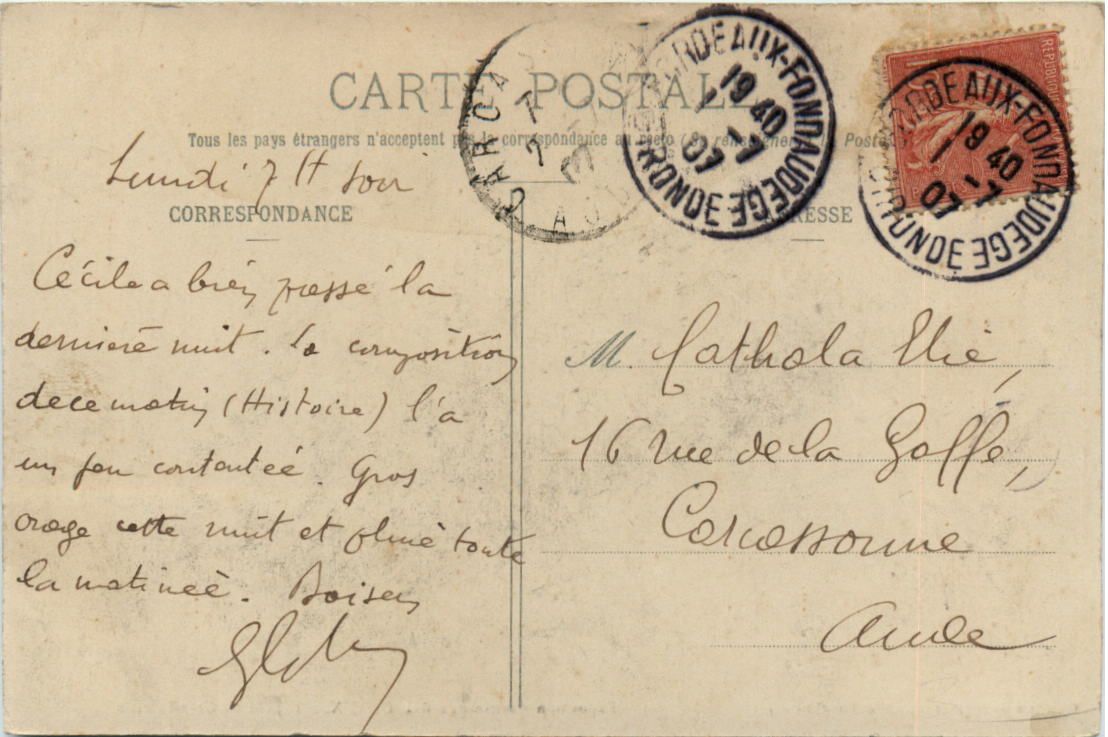 CARTE POSTALE
Tous les pays étrangers n'acceptent pas la correspondance au recto (Se renseigner à la Poste)
Lundi 7 H soir
CORRESPONDANCE
Cécile a bien passé la
dernière nuit. La composition
de ce matin (Histoire) l'a
un peu contentée. Gros
orage cette nuit et pluie toute
la matinée. Baisers
ADRESSE
M. Cathala Elie,
16 rue de la Gaffe,
Carcassonne
Aude
CARCAS
7
AUDE
BORDEAUX-FONDAUDEGE
19 40
1 -7
07
GIRONDE
REPUBLIQUE
BORDEAUX-FONDAUDEGE
19 40
1 -7
07
GIRONDE